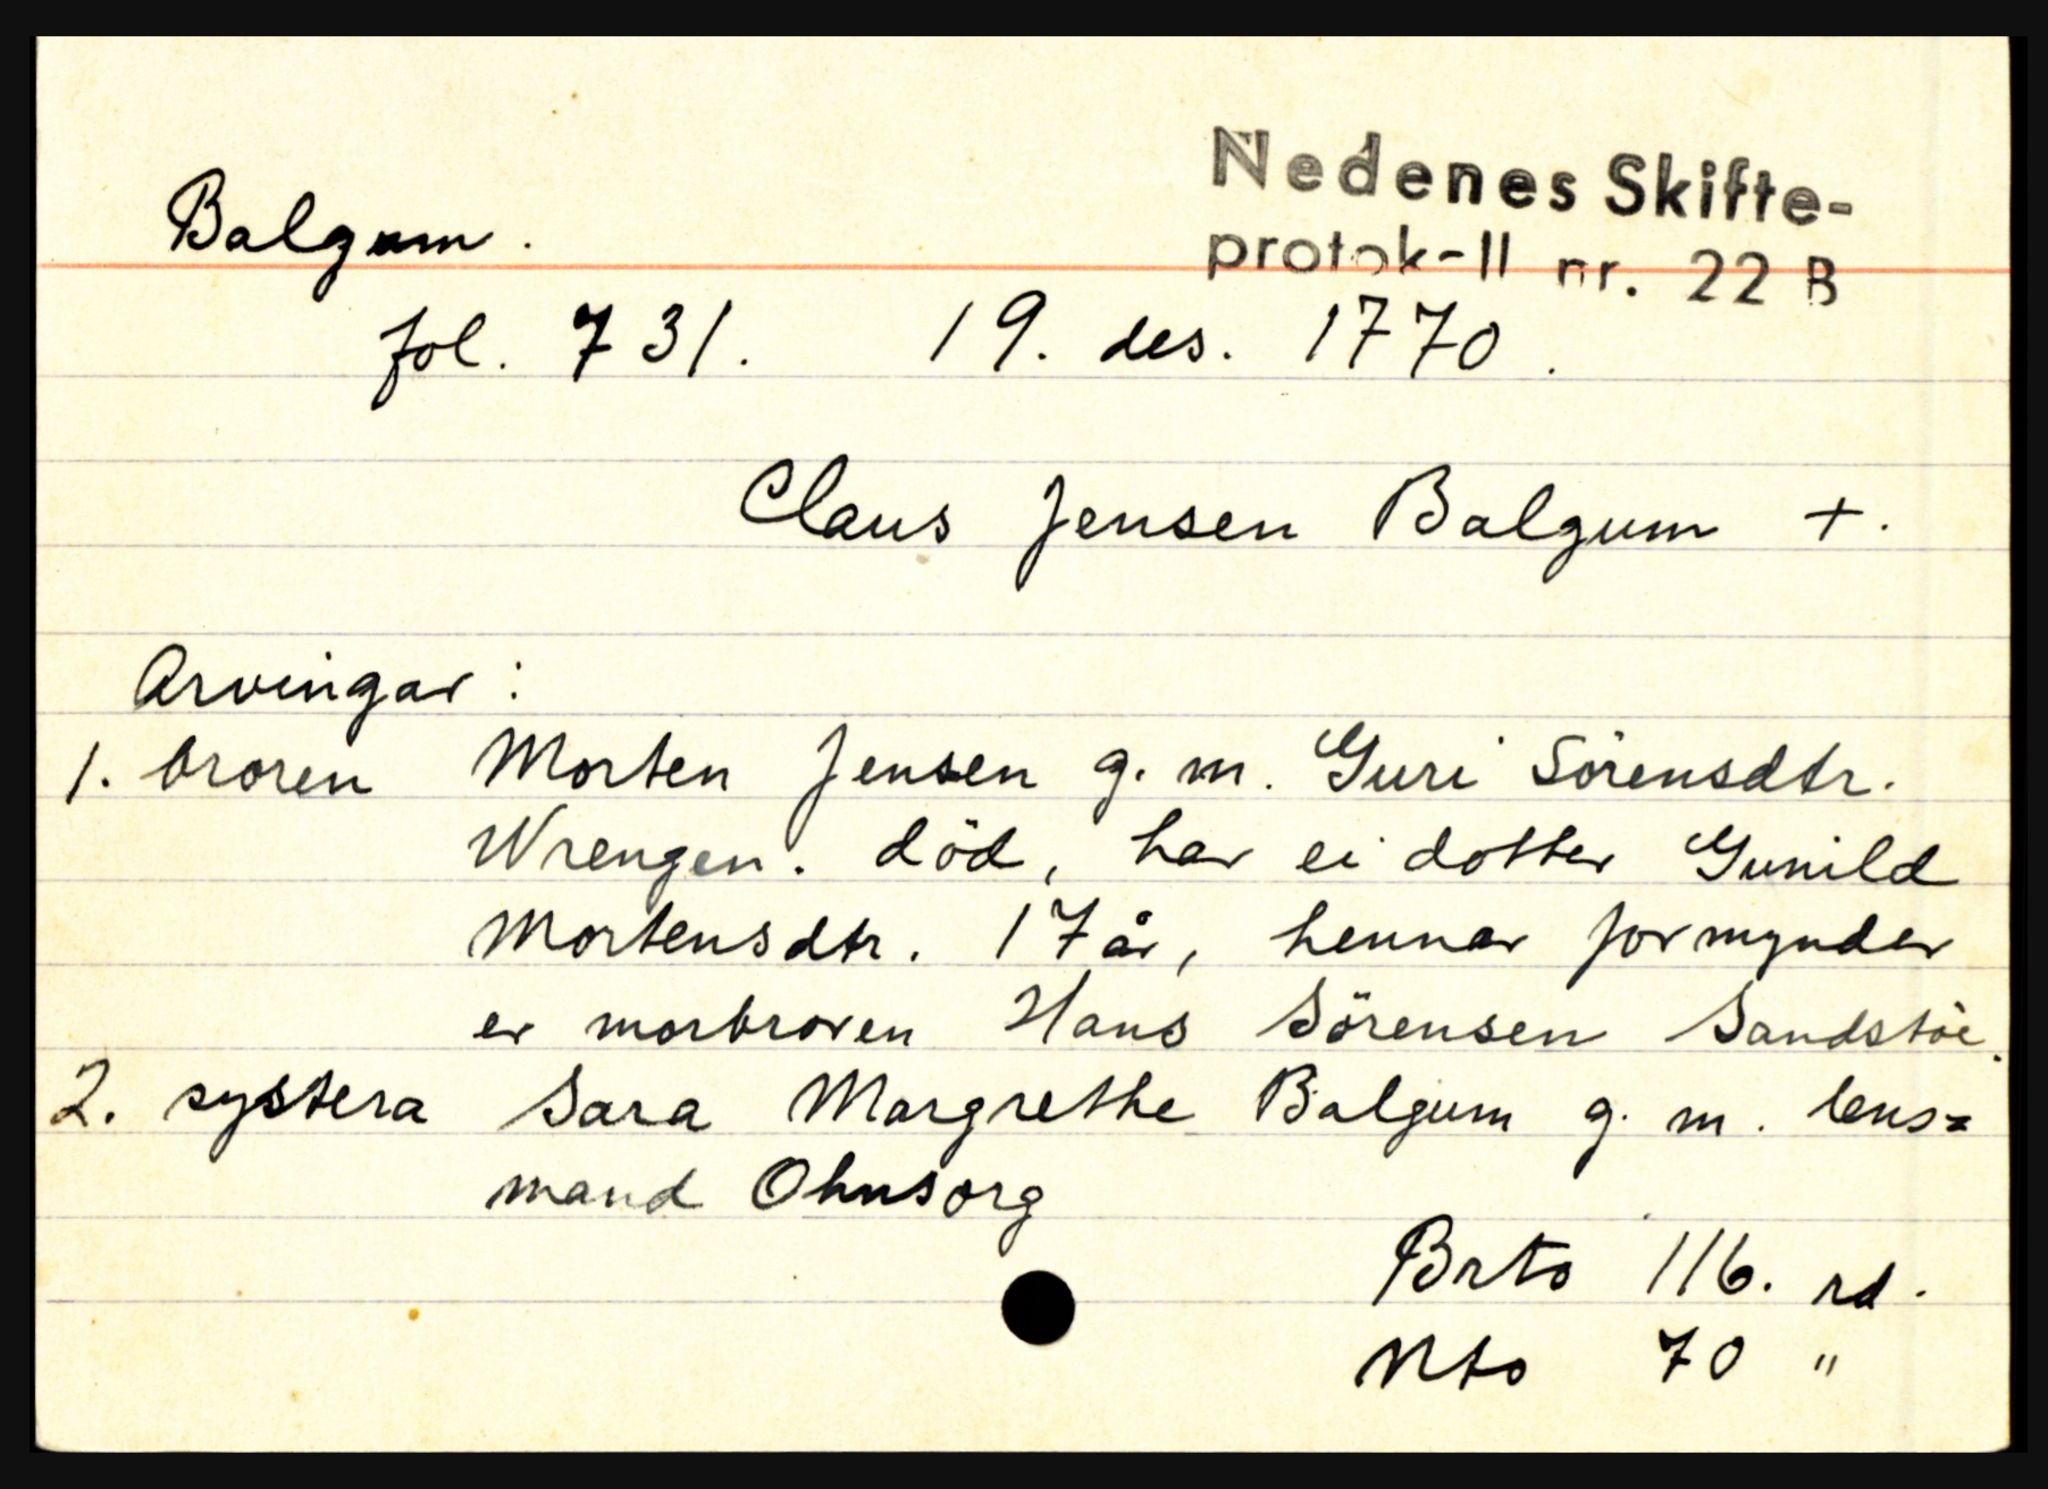 Nedenes Skifte-
protok-II nr. 22 B
Balgum.
fol. 731. 19. des. 1770.
Claus Jensen Balgum +.
Arvingar:
1. broren Morten Jensen g. m. Guri Sörensdtr.
Wrengen. död, har ei dotter Gunild
Mortensdtr. 17 år, hennar formynder
er morbroren Hans Sörensen Sandstöe.
2. systera Sara Margrethe Balgum g. m. lens=
mand Ohnsorg
Brto 116. rd.
Nto 70 "